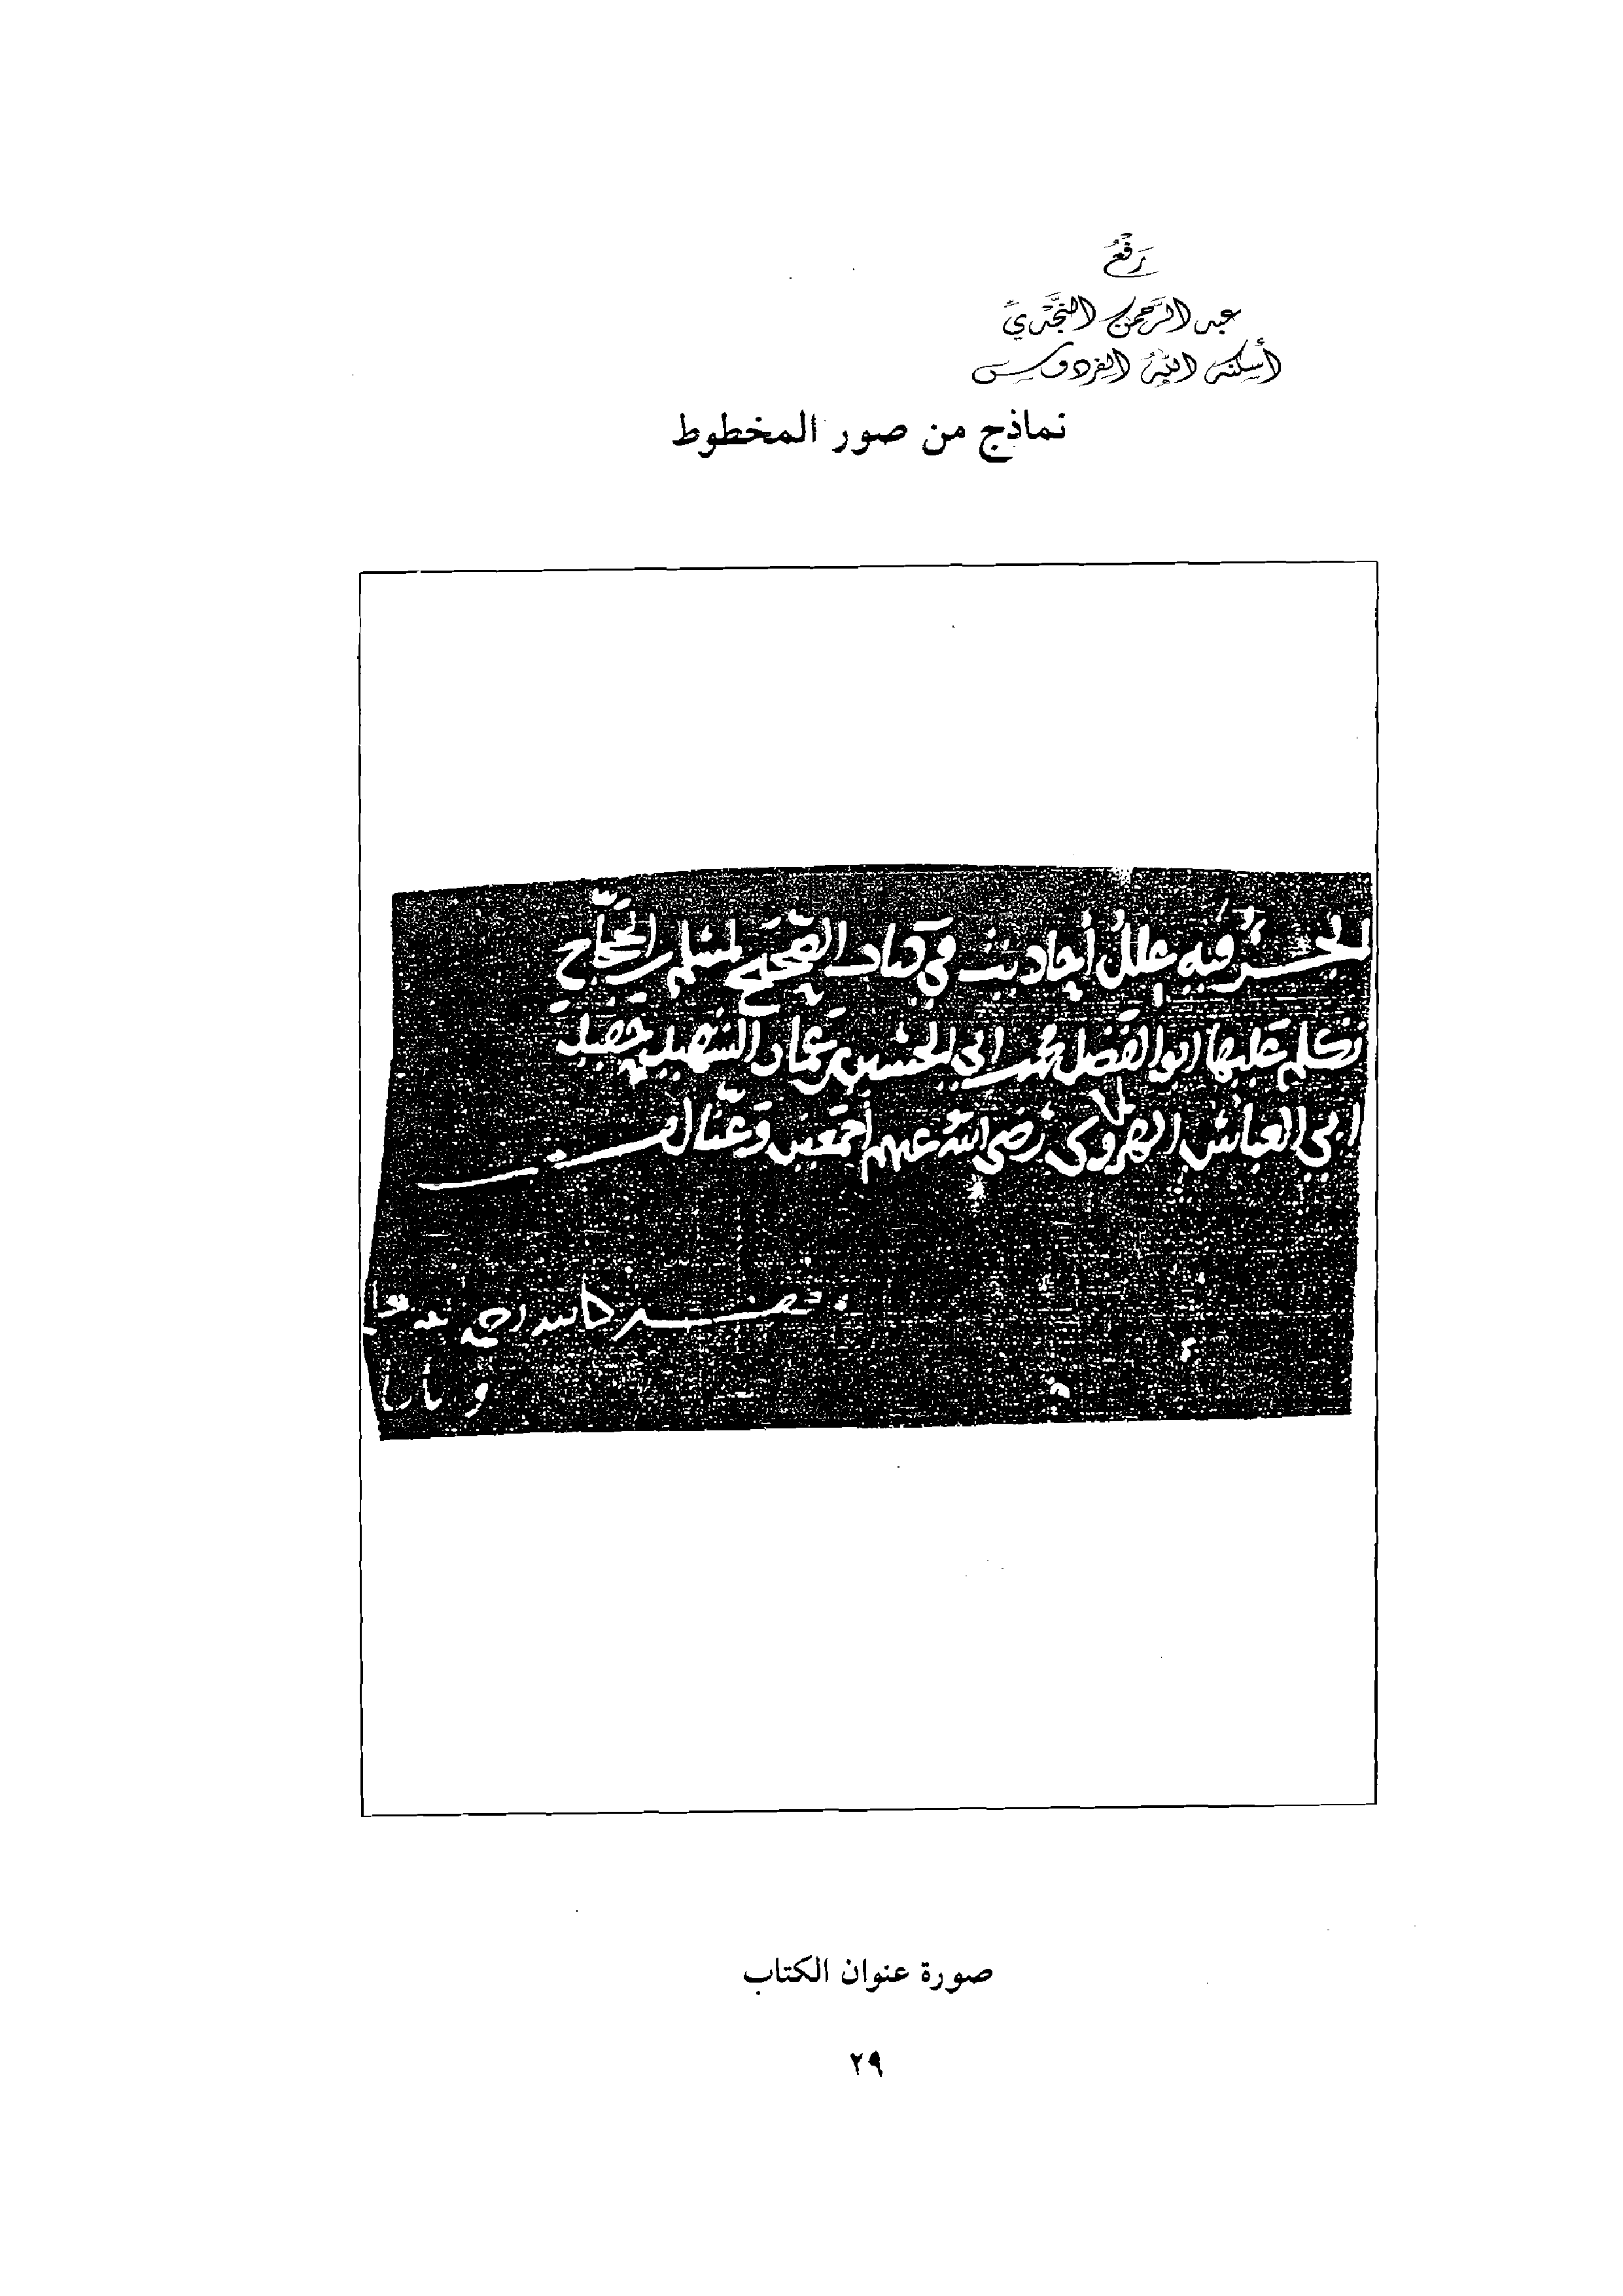 رَفْعُ
عبد الرَّحمن النَّجْديّ
أسكنه الله الفردوس
نماذج من صور المخطوط
الجزء فيه علل أحاديث في كتاب الصحيح لمسلم بن الحجاج
تكلم عليها ابو الفضل محمد بن ابي الحسين بن عمار الشهيد
ابي العباس الهروي رضي الله عنهم أجمعين وعنا
صورة عنوان الكتاب
٢٩